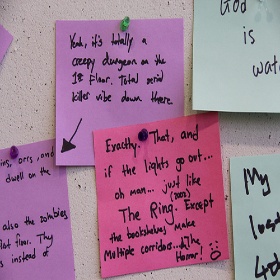 Yeah, it's totally a
creepy dungeon on the
18 floor. Total serial
killer vibe down there
Exactly. That, and
if the lights go out...
oh man... just like
(2002)
The Ring. Except
the bookshelves make
Multiple corridors...The
Horror!
God
is
wat
orcs, and
dwell on the
also the zombies
flat floor. They
s instead of
My